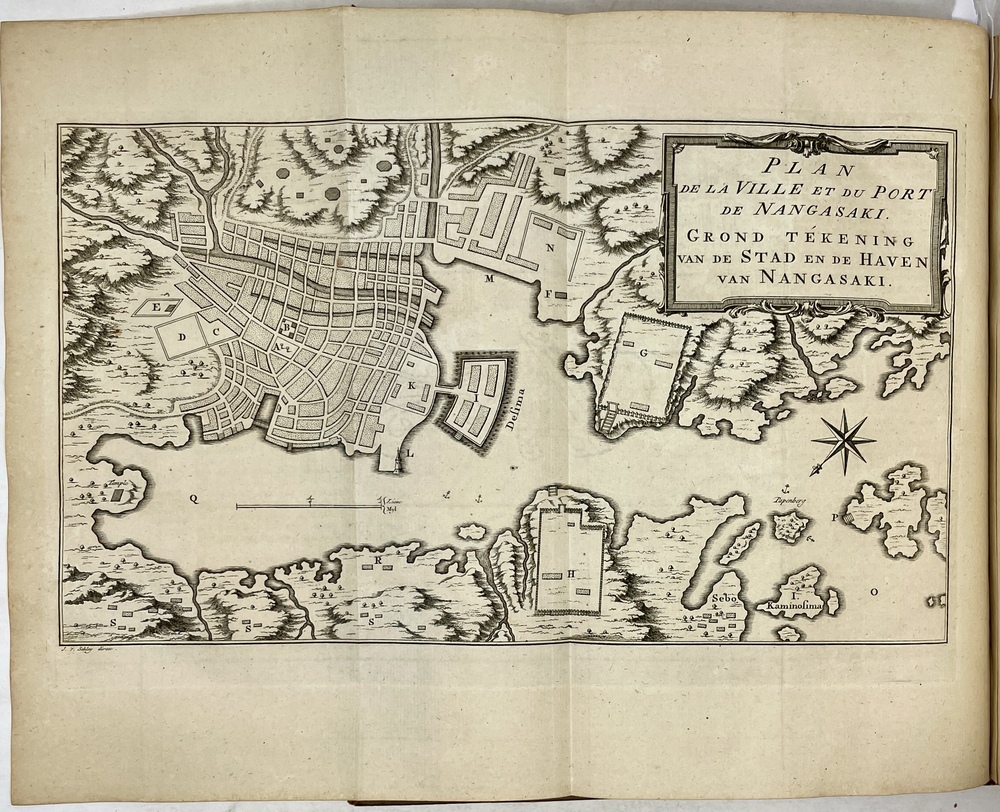 PLAN
DE LA VILLE ET DU PORT
DE NANGASAKI.
GROND TÉKENING
VAN DE STAD EN DE HAVEN
VAN NANGASAKI.
N
M
F
E
D
C
B
A
G
K
Desima
L
Temple
Q
Papenberg
P
R
H
O
I
Kaminosima
Sebo
S
S
S
J. v. Schley direx.